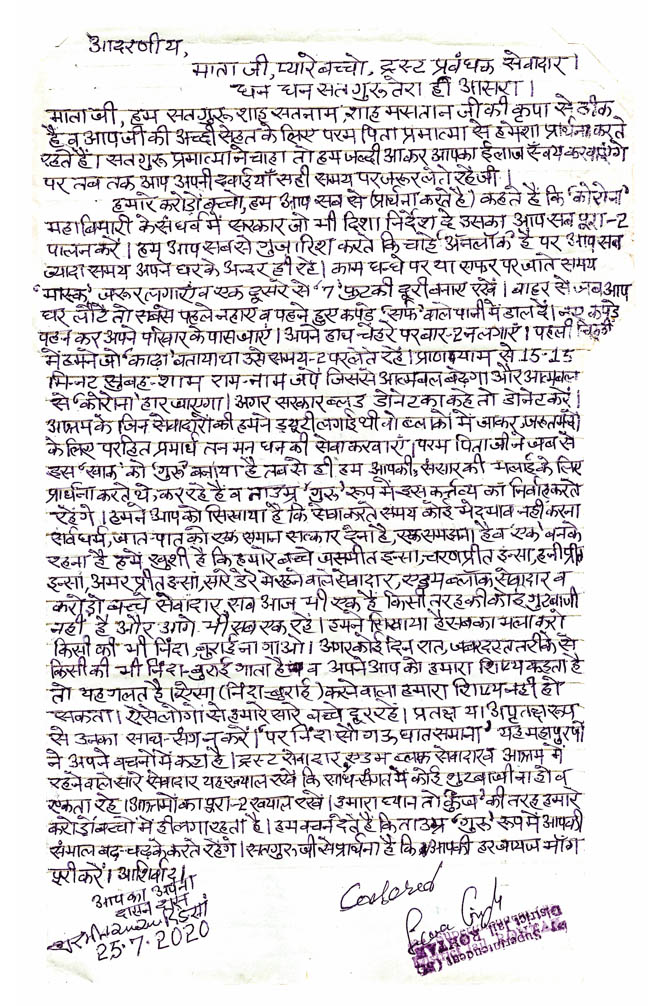 आदरणीय,
माता जी, प्यारे बच्चो, ट्रस्ट प्रबंधक सेवादार।
धन धन सतगुरु तेरा ही आसरा।
माता जी, हम सतगुरु शाह सतनाम, शाह मसतान जी की कृपा से ठीक
है व आप जी की अच्छी सेहत के लिए परम पिता प्रमात्मा से हमेशा प्रार्थना करते
रहते हैं। सतगुरु प्रमात्मा ने चाहा तो हम जल्दी आकर आपका ईलाज स्वयं करवाएंगे
पर तब तक आप अपनी दवाईयाँ सही समय पर जरूर लेते रहें जी।
हमारे करोड़ों बच्चो, हम आप सब से (प्रार्थना करते हैं) कहते हैं कि 'कोरोना'
महाबिमारी के संधर्व में सरकार जो भी दिशा निर्देश दे उसका आप सब पूरा-2
पालन करें। हम आप सब से गुजारिश करते कि चाहे अनलॉक है पर आप सब
ज्यादा समय अपने घर के अन्दर ही रहें। काम धन्धे पर या सफर पर जाते समय
'मास्क' जरूर लगाएं व एक दूसरे से '7' फुट की दूरी बनाए रखें। बाहर से जब आप
घर लौटें तो सबसे पहले नहाए व पहने हुए कपड़े 'सर्फ' वाले पानी में डाल दें। नए कपड़े
पहन कर अपने परिवार के पास जाएं। अपने हाथ चेहरे पर बार-2 न लगाएं। पहली चिट्ठी
में हमने जो 'काढ़ा' बताया था उसे समय-2 पर लेते रहें। प्राणायाम से 15-15
मिनट सुबह-शाम राम-नाम जपें जिससे आत्मबल बढ़ेगा और आत्मबल
से 'कोरोना' हार जाएगा। अगर सरकार ब्लड डोनेट को कहे तो डोनेट करें।
आश्रम के जिन सेवादारों की हमने ड्यूटी लगाई थी वो ब्लाकों में जाकर, जरूतमंदों
के लिए परहित प्रमार्थ तन मन धन की सेवा करवाएं। परम पिता जी ने जब से
इस 'खाक' को 'गुरु' बनाया है तब से ही हम आपकी, संसार की भलाई के लिए
प्रार्थना करते थे, कर रहे हैं व ताउम्र 'गुरु' रूप में इस कर्त्तव्य का निर्वाह करते
रहेंगे। हमने आपको सिखाया है कि सेवा करते समय कोई भेदभाव नहीं करना
सर्व धर्म, जात-पात को एक समान सत्कार देना है, एक समझना है व 'एक' बनके
रहना है। हमें खुशी है कि हमारे बच्चे जसमीत इन्सां, चरणप्रीत इन्सां, हनीप्रीत
इन्सां, अमरप्रीत इन्सां, सारे डेरे में रहने वाले सेवादार, एडम ब्लॉक सेवादार व
करोड़ों बच्चे सेवादार सब आज भी एक हैं किसी तरह की कोई गुटबाजी
नहीं है और आगे भी सब एक रहें। हमने सिखाया है सबका भला करो
किसी की भी निंदा, बुराई ना गाओ। अगर कोई दिन रात, जबरदस्त तरीके से
किसी की भी निंदा-बुराई गाता है व अपने आप को हमारा शिष्य कहता है
तो यह गलत है। ऐसा (निंदा-बुराई) करने वाला हमारा शिष्य नहीं हो
सकता। ऐसे लोगों से हमारे सारे बच्चे दूर रहें। प्रतक्ष या अप्रतक्ष रूप
से उनका साथ-संग न करें। 'पर निंदा सौ गऊ घात समाना' यह महापुरुषों
ने अपने वचनों में कहा है। ट्रस्ट सेवादार, एडम ब्लाक सेवादार व आश्रम में
रहने वाले सारे सेवादार यह ख्याल रखें कि साध संगत में कोई गुटबाजी ना हो व
एकता रहे। आश्रमों का पूरा-2 ख्याल रखें। हमारा ध्यान तो 'कुंज' की तरह हमारे
करोड़ों बच्चों में ही लगा रहता है। हम वचन देते हैं कि ताउम्र 'गुरु' रूप में आपकी
संभाल बढ़-चढ़ के करते रहेंगे। सतगुरु जी से प्रार्थना है कि आपकी हर जायज माँग
पूरी करें। आशिर्वाद।
आप का अपना
दासन दास
25.7.2020
Censored
Superintendent
District Jail, ROHTAK